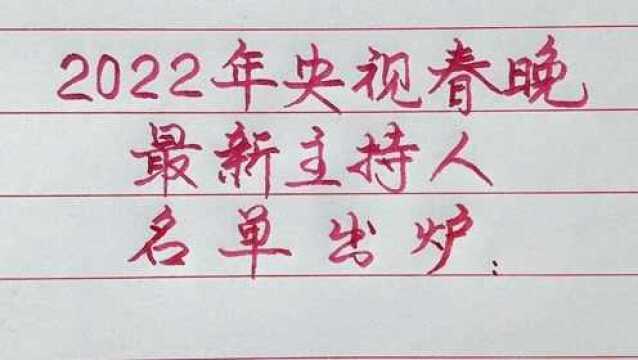 2022年央视春晚
最新主持人
名单出炉: